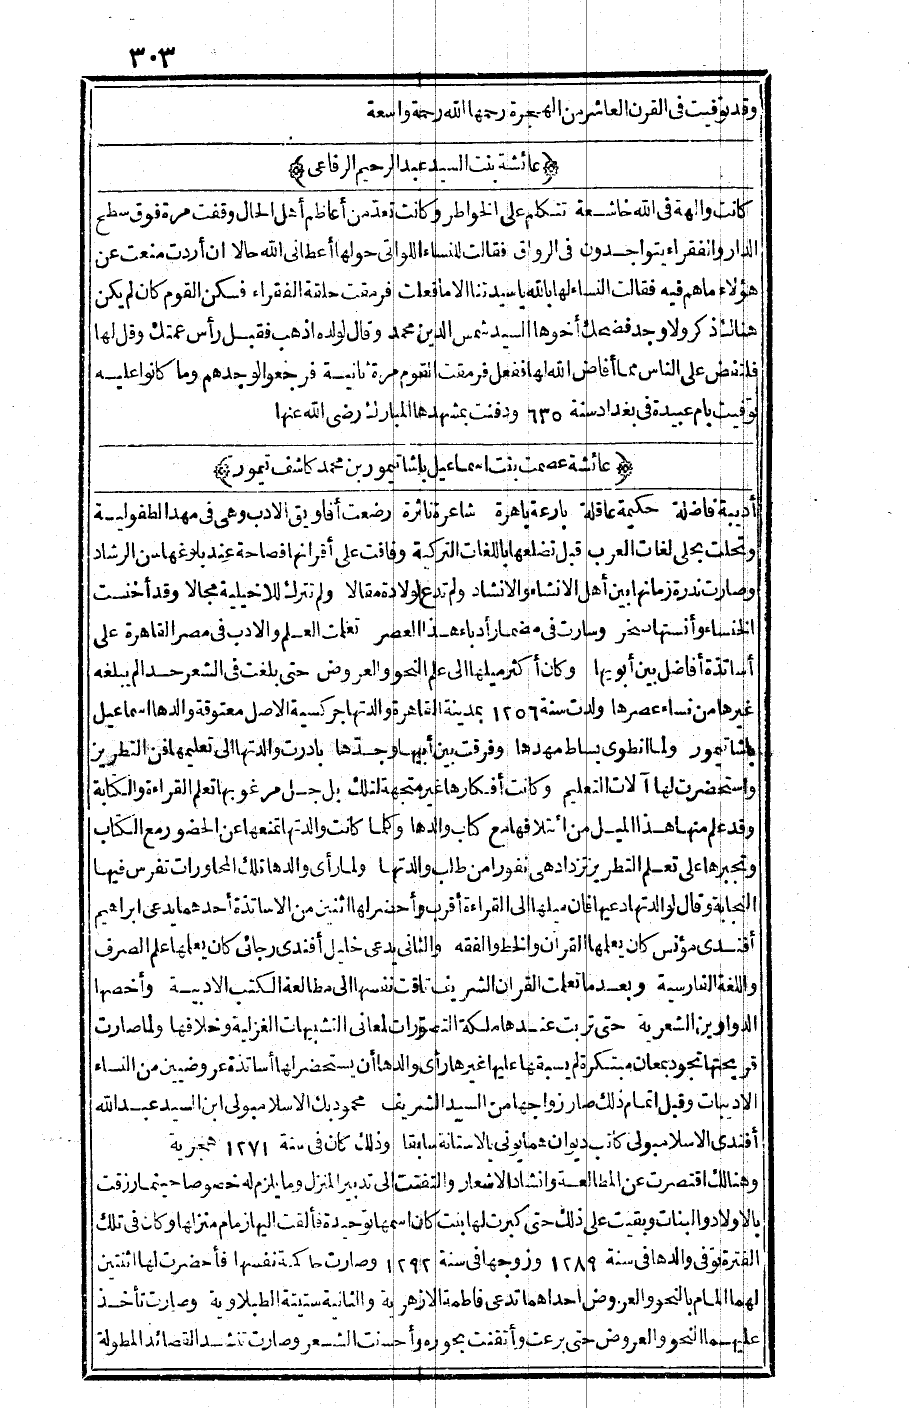 ٣٠٣
وقد توفيت فى القرن العاشر من الهجرة رحمها الله رحمة واسعة
﴿عائشة بنت السيد عبد الرحيم الرفاعى﴾
كانت والهة فى الله خاشعة تتكلم على الخواطر وكانت تعد من أعاظم أهل الحال وقفت مرة فوق سطح
الدار والفقراء يتواجدون فى الرواق فقالت للنساء اللواتى حولها أعطانى الله حالا ان أردت منعت عن
هؤلاء ما هم فيه فقالت النساء لها بالله يا سيدتنا الا ما فعلت فرمقت حلقة الفقراء فسكن القوم كان لم يكن
هنالك ذكر ولا وجد فضحك أخوها السيد شمس الدين محمد وقال لولده اذهب فقبل رأس عمتك وقل لها
فلتفض على الناس مما أفاض الله لها ففعل فرمقت القوم مرة ثانية فرجعوا لوجدهم وما كانوا عليه
توفيت بام عبيدة فى بغداد سنة ٦٣٥ ودفنت بمشهدها المبارك رضى الله عنها
﴿عائشة عصمت بنت اسماعيل باشا تيمور بن محمد كاشف تيمور﴾
أديبة فاضلة حكيمة عاقلة بارعة باهرة شاعرة ناثرة رضعت أفاويق الادب وهى فى مهد الطفولية
وتحلت بحلى لغات العرب قبل تضلعها باللغات التركية وفاقت على أقرانها فصاحة عند بلوغها سن الرشاد
وصارت ندرة زمانها بين أهل الانشاء والانشاد ولم تدع لولادة مقالا ولم تترك للاخيلية مجالا وقد أخنست
الخنساء وأنستها صخر وسارت فى مضمار أدباء هذا العصر تعلمت العلم والادب فى مصر القاهرة على
أساتذة أفاضل بين أبويها وكان أكثر ميلها الى علم النحو والعروض حتى بلغت فى الشعر حدا لم يبلغه
غيرها من نساء عصرها ولدت سنة ١٢٥٦ بمدينة القاهرة والدتها جركسية الاصل معتوقة والدها اسماعيل
باشا تيمور ولما انطوى بساط مهدها وفرقت بين أبيها وجدها بادرت والدتها الى تعليمها فن التطريز
واستحضرت لها آلات التعليم وكانت أفكارها غير متجهة لذلك بل جل مرغوبها تعلم القراءة والكتابة
وقد علم منها هذا الميل من ائتلافها مع كتاب والدها وكلما كانت والدتها تمنعها عن الحضور مع الكتاب
وتجبرها على تعلم التطريز تزداد هى نفورا من طلب والدتها ولما رأى والدها تلك المحاورات تفرس فيها
النجابة وقال لوالدتها دعيها فان ميلها الى القراءة أقرب وأحضر لها اثنين من الاساتذة أحدهما يدعى ابراهيم
أفندى مؤنس كان يعلمها القرآن والخط والفقه والثانى يدعى خليل أفندى رجائى كان يعلمها علم الصرف
واللغة الفارسية وبعدما تعلمت القرآن الشريف تاقت نفسها الى مطالعة الكتب الادبية وأخصها
الدواوين الشعرية حتى تربت عندها ملكة التصورات لمعانى التشبيهات الغزلية وخلافها ولما صارت
قريحتها تجود بمعان مبتكرة لم يسبقها عليها غيرها رأى والدها أن يستحضر لها أساتذة عروضيين من النساء
الاديبات وقبل اتمام ذلك صار زواجها من السيد الشريف محمود بك الاسلامبولى ابن السيد عبد الله
أفندى الاسلامبولى كاتب ديوان همايونى بالاستانة سابقا وذلك كان فى سنة ١٢٧١ هجرية
وهنالك اقتصرت عن المطالعة وانشاد الاشعار والتفتت الى تدبير المنزل وما يلزم له خصوصا حينما رزقت
بالاولاد والبنات وبقيت على ذلك حتى كبرت لها بنت كان اسمها توحيدة فألقت اليها زمام منزلها وكان فى تلك
الفترة توفى والدها فى سنة ١٢٨٩ وزوجها فى سنة ١٢٩٢ وصارت حاكمة نفسها فأحضرت لها اثنتين
لهما المام بالنحو والعروض احداهما تدعى فاطمة الازهرية والثانية ستيتة الطبلاوية وصارت تأخذ
عليهما النحو والعروض حتى برعت وأتقنت بحوره وأحسنت الشعر وصارت تنشد القصائد المطولة